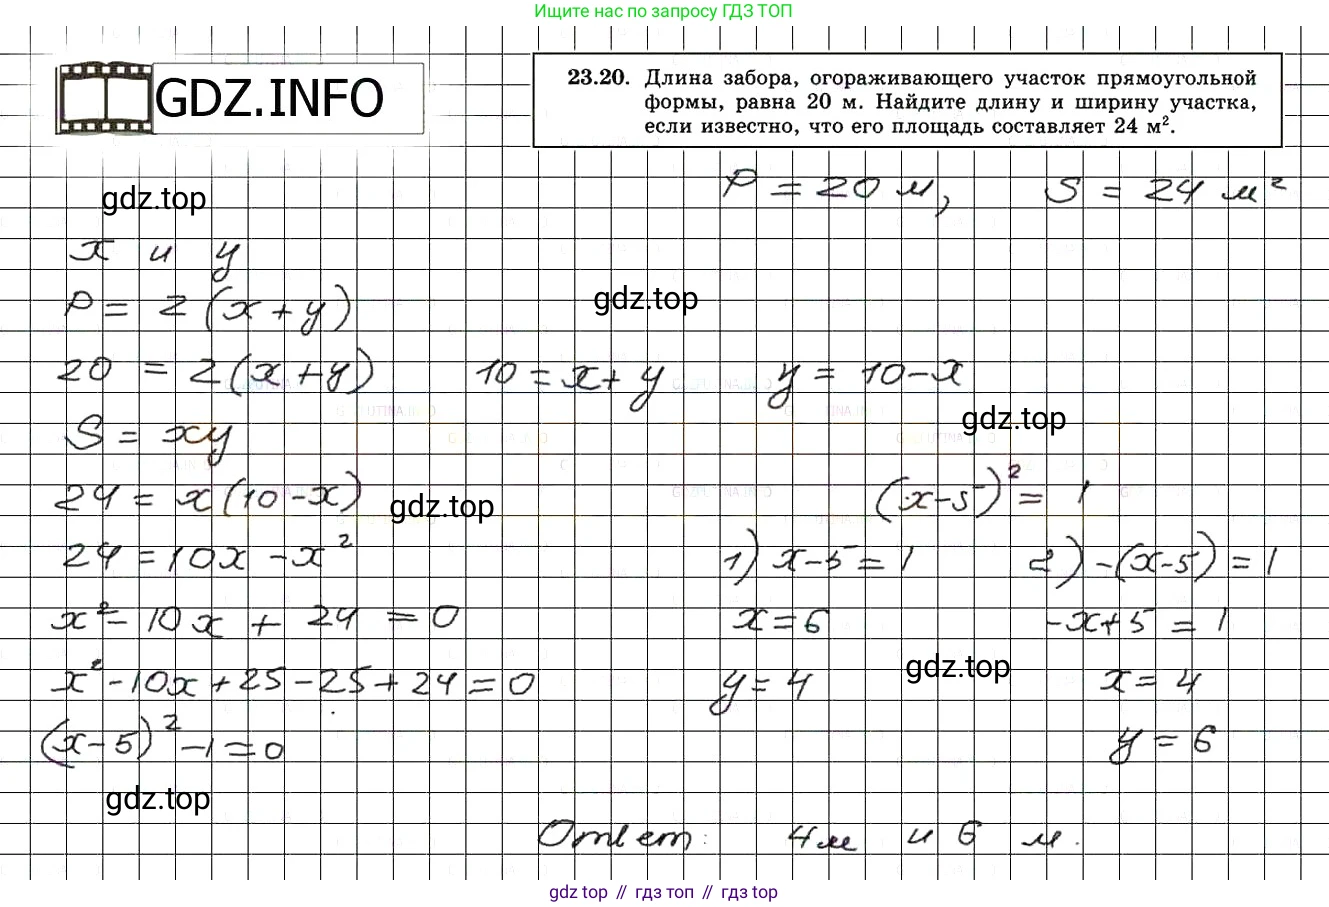 Ищите нас по запросу ГДЗ ТОП
GDZ.INFO
23.20. Длина забора, огораживающего участок прямоугольной
формы, равна 20 м. Найдите длину и ширину участка,
если известно, что его площадь составляет 24 м².
P = 20 м, S = 24 м²
gdz.top
x и y
P = 2(x+y)
gdz.top
20 = 2(x+y) 10 = x+y y = 10-x
gdz.top
S = xy
24 = x(10-x)
gdz.top
(x-5)² = 1
24 = 10x - x²
1) x-5 = 1 2) -(x-5) = 1
x² - 10x + 24 = 0
x = 6 -x+5 = 1
gdz.top
x² - 10x + 25 - 25 + 24 = 0
y = 4 x = 4
(x-5)² - 1 = 0
y = 6
gdz.top
Ответ: 4м и 6 м.
gdz top // гдз топ // гдз top